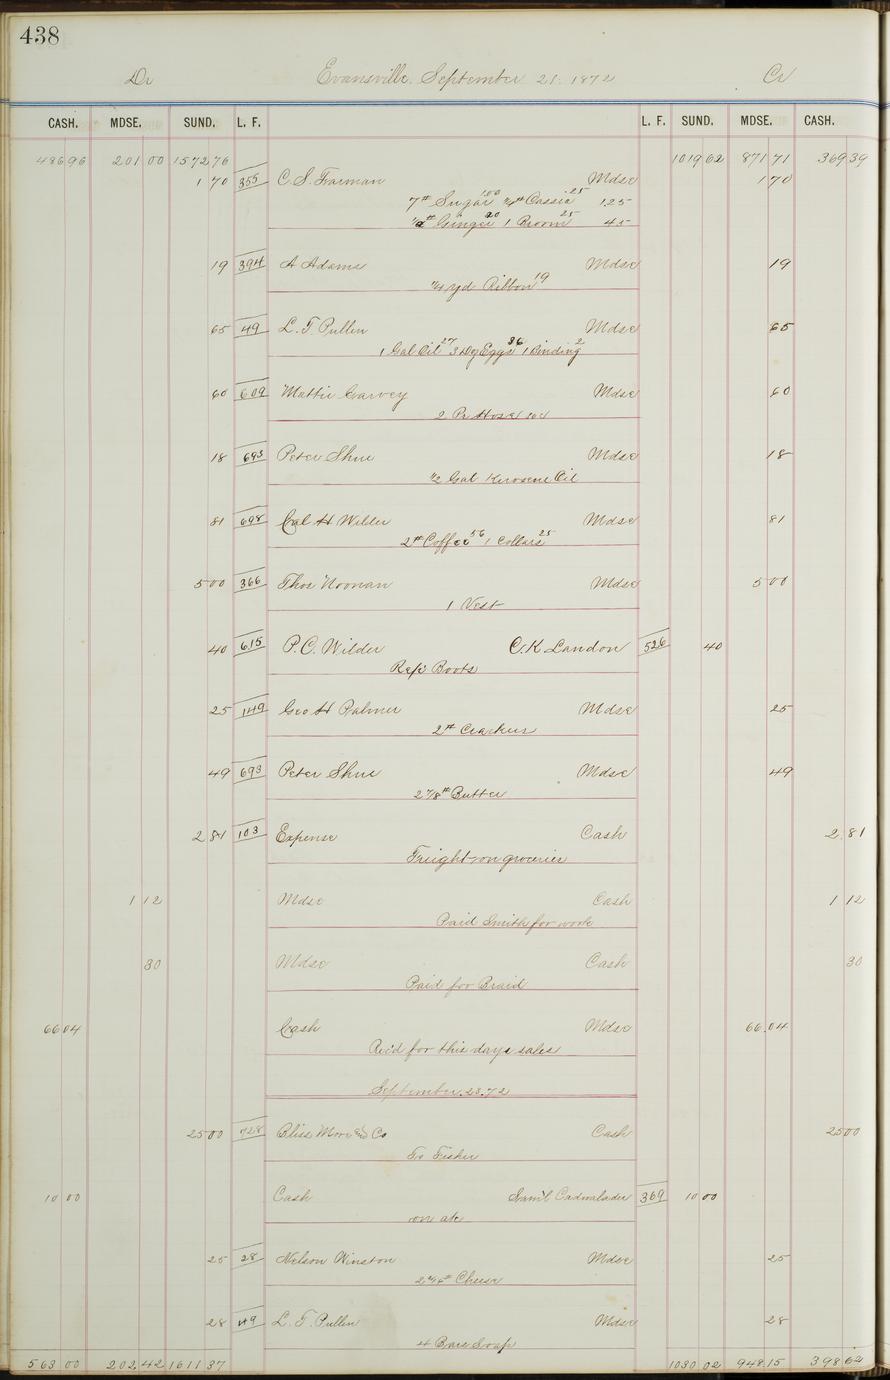 438
Dr Evansville, September 21. 1872 Cr
CASH. MDSE. SUND. L. F. L. F. SUND. MDSE. CASH.
486 96 201 00 1572 76 1019 62 871 71 369 39
1 70 355 C. S. Mdse 1 70
7# Sugar 100 1/4# Cassia 25 1.25
1/2# Ginger 20 1 Broom 25 45
19 394 A Adams Mdse 19
3/4 yd Ribbon 19
65 49 L. T. Pullen Mdse 65
1 Gal Oil 27 3 Doz Eggs 36 1 Binding 2
60 609 Mattie Garvey Mdse 60
2 Pr Hose
18 693 Peter Shue Mdse 18
1/2 Gal Kerosene Oil
81 698 Cal H Wilder Mdse 81
2# Coffee 56 1 Collars 25
5 00 366 Thos Noonan Mdse 5 00
1 Vest
40 615 P. C. Wilder C. K Landon 526 40
Boots
25 149 Geo H Palmer Mdse 25
2# Crackers
49 693 Peter Shue Mdse 49
2 7/8# Butter
2 81 103 Expense Cash 2 81
Freight on groceries
1 12 Mdse Cash 1 12
Paid Smith for work
30 Mdse Cash 30
Paid for Braid
66 04 Cash Mdse 66.04
Rec'd for this days sales
September. 23. 72
25 00 728 Bliss More and Co Cash 25 00
To Fisher
10 00 Cash Saml Cadwalader 369 10 00
on a/c
25 28 Nelson Winston Mdse 25
Cheese
28 49 L. T. Pullen Mdse 28
4 Bars Soap
563 00 202.42 1611 37 1030 02 948.15 398 62